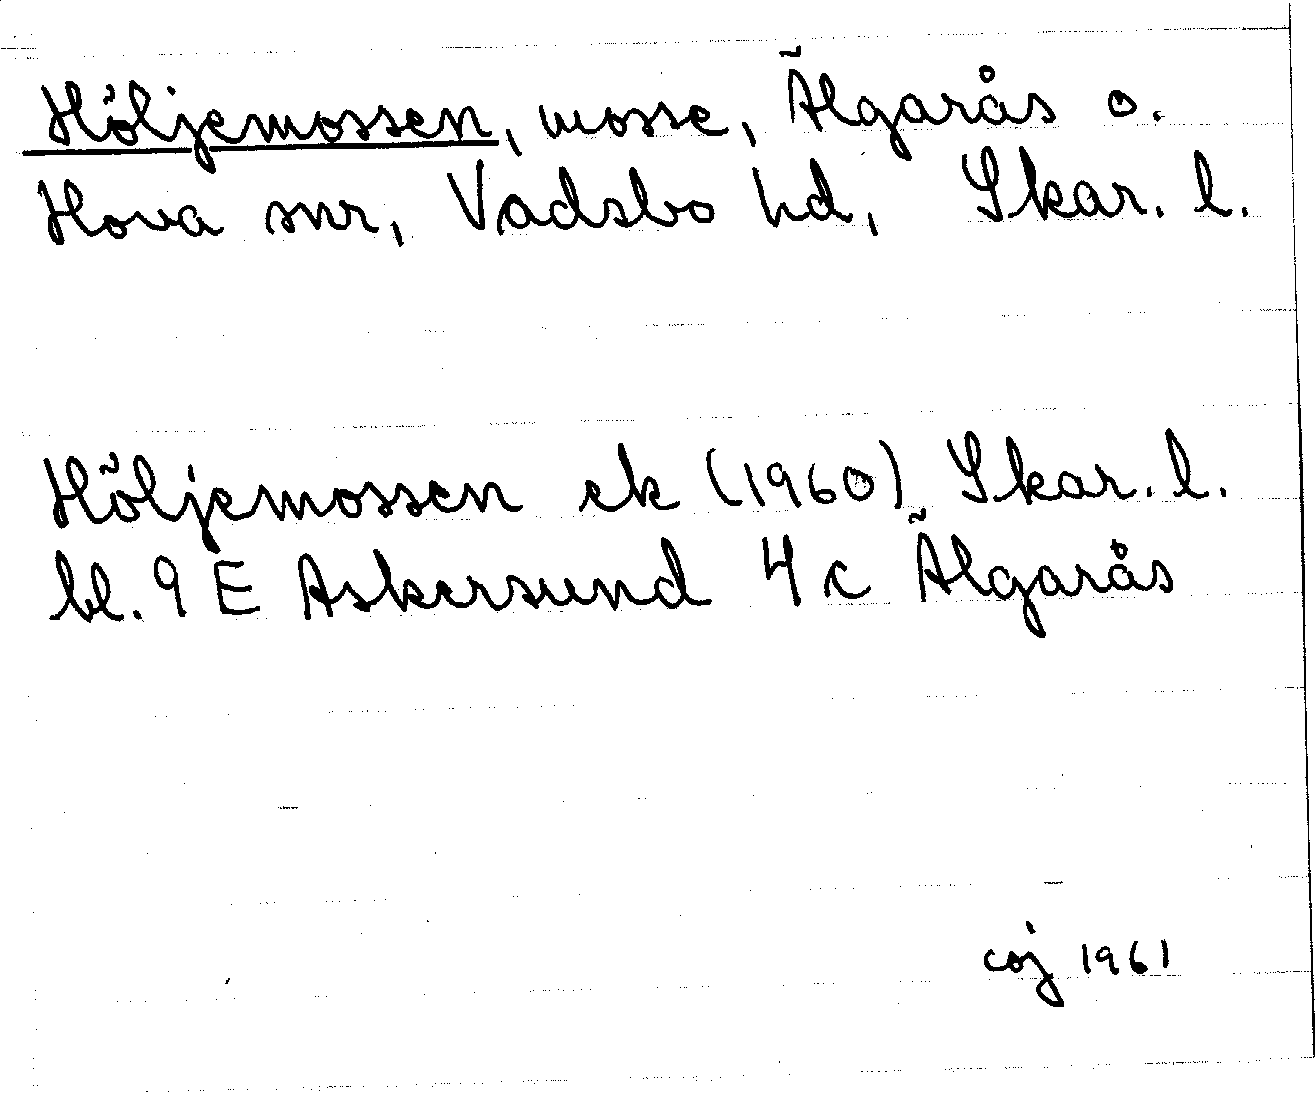 Höljemossen, mosse, Älgarås o.
Hova snr, Vadsbo hd, Skar. l.
Höljemossen ek (1960) Skar. l.
bl. 9 E Askersund 4 c Älgarås
coj 1961